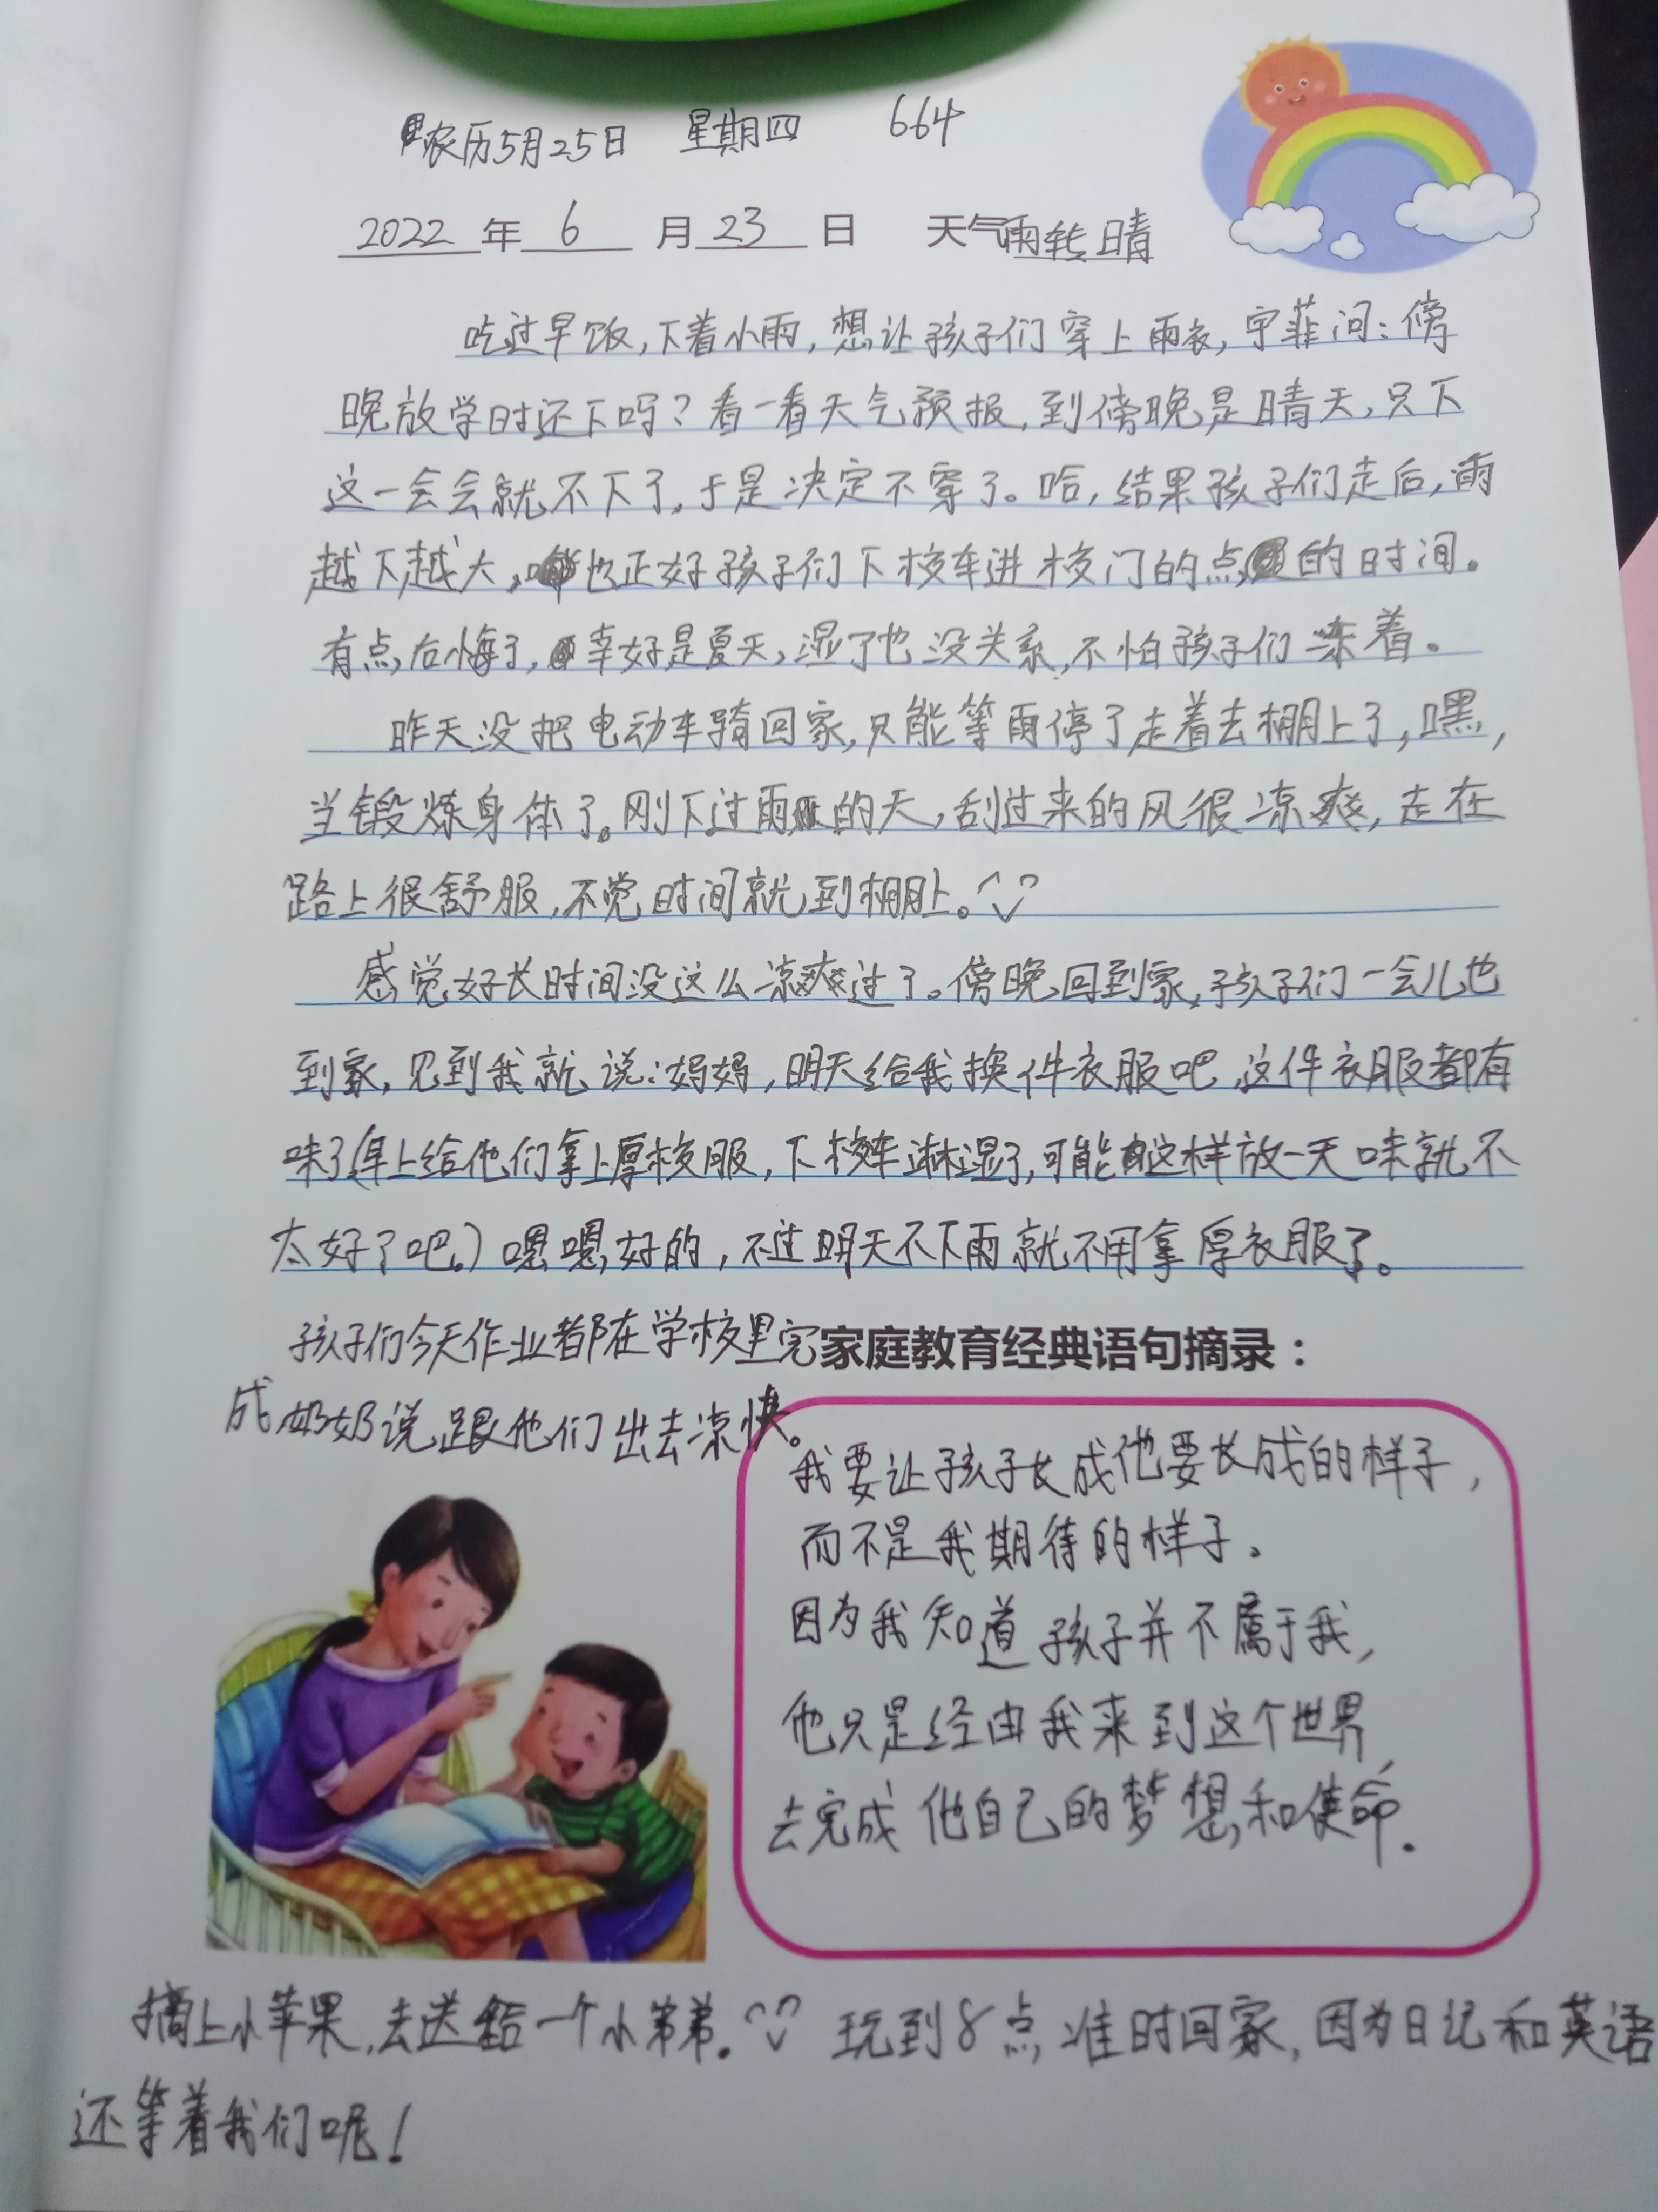 农历5月25日 星期四 664
2022年6月23日 天气雨转晴
吃过早饭,下着小雨,想让孩子们穿上雨衣,宇菲问:傍
晚放学时还下吗?看一看天气预报,到傍晚是晴天,只下
这一会会就不下了,于是决定不穿了。哈,结果孩子们走后,雨
越下越大,也正好孩子们下校车进校门的点的时间。
有点后悔了,幸好是夏天,湿了也没关系,不怕孩子们冻着。
昨天没把电动车骑回家,只能等雨停了走着去棚上了,嘿,
当锻炼身体了。刚下过雨的天,刮过来的风很凉爽,走在
路上很舒服,不觉时间就到棚上。
感觉好长时间没这么凉爽过了。傍晚回到家,孩子们一会儿也
到家,见到我就说:妈妈,明天给我换件衣服吧,这件衣服都有
味了(早上给他们拿上厚校服,下校车淋湿了,可能这样放一天味就不
太好了吧。)嗯嗯,好的,不过明天不下雨就不用拿厚衣服了。
孩子们今天作业都在学校里完
成,奶奶说跟他们出去凉快。
家庭教育经典语句摘录:
我要让孩子长成他要长成的样子,
而不是我期待的样子。
因为我知道孩子并不属于我,
他只是经由我来到这个世界,
去完成他自己的梦想和使命.
摘上小苹果,去送给一个小弟弟。玩到8点准时回家,因为日记和英语
还等着我们呢!